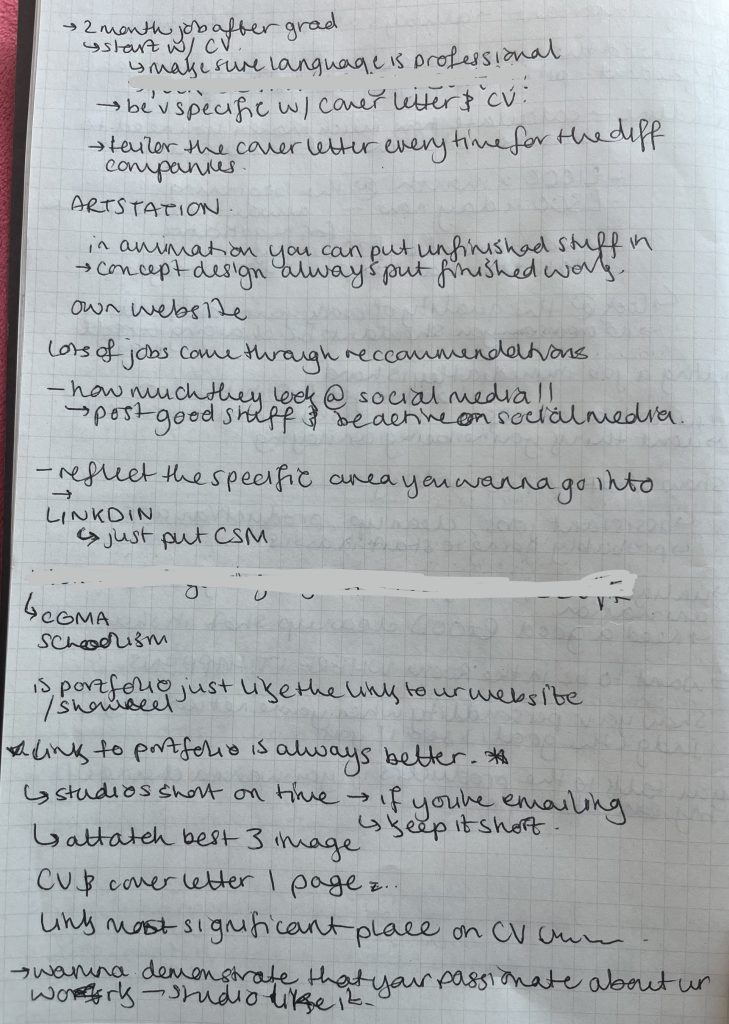 → 2 month job after grad
↳ start w/ CV.
↳ make sure language is professional
→ be v specific w/ cover letter & CV!
→ tailor the cover letter everytime for the diff
companies.
ARTSTATION.
in animation you can put unfinished stuff in
→ concept design always put finished work.
own website
lots of jobs come through reccommendations
- how much they look @ social media!!
→ post good stuff & be active on social media.
- reflect the specific area you wanna go into
→
LINKDIN
↳ just put CSM
↳ CGMA
SCHOOLISM
is portfolio just like the link to ur website
/showreel
* Link to portfolio is always better. *
↳ studios short on time → if you're emailing
↳ keep it short.
↳ attatch best 3 image
CV & cover letter 1 page
link most significant place on CV
→ wanna demonstrate that your passionate about ur
work → studio like it.